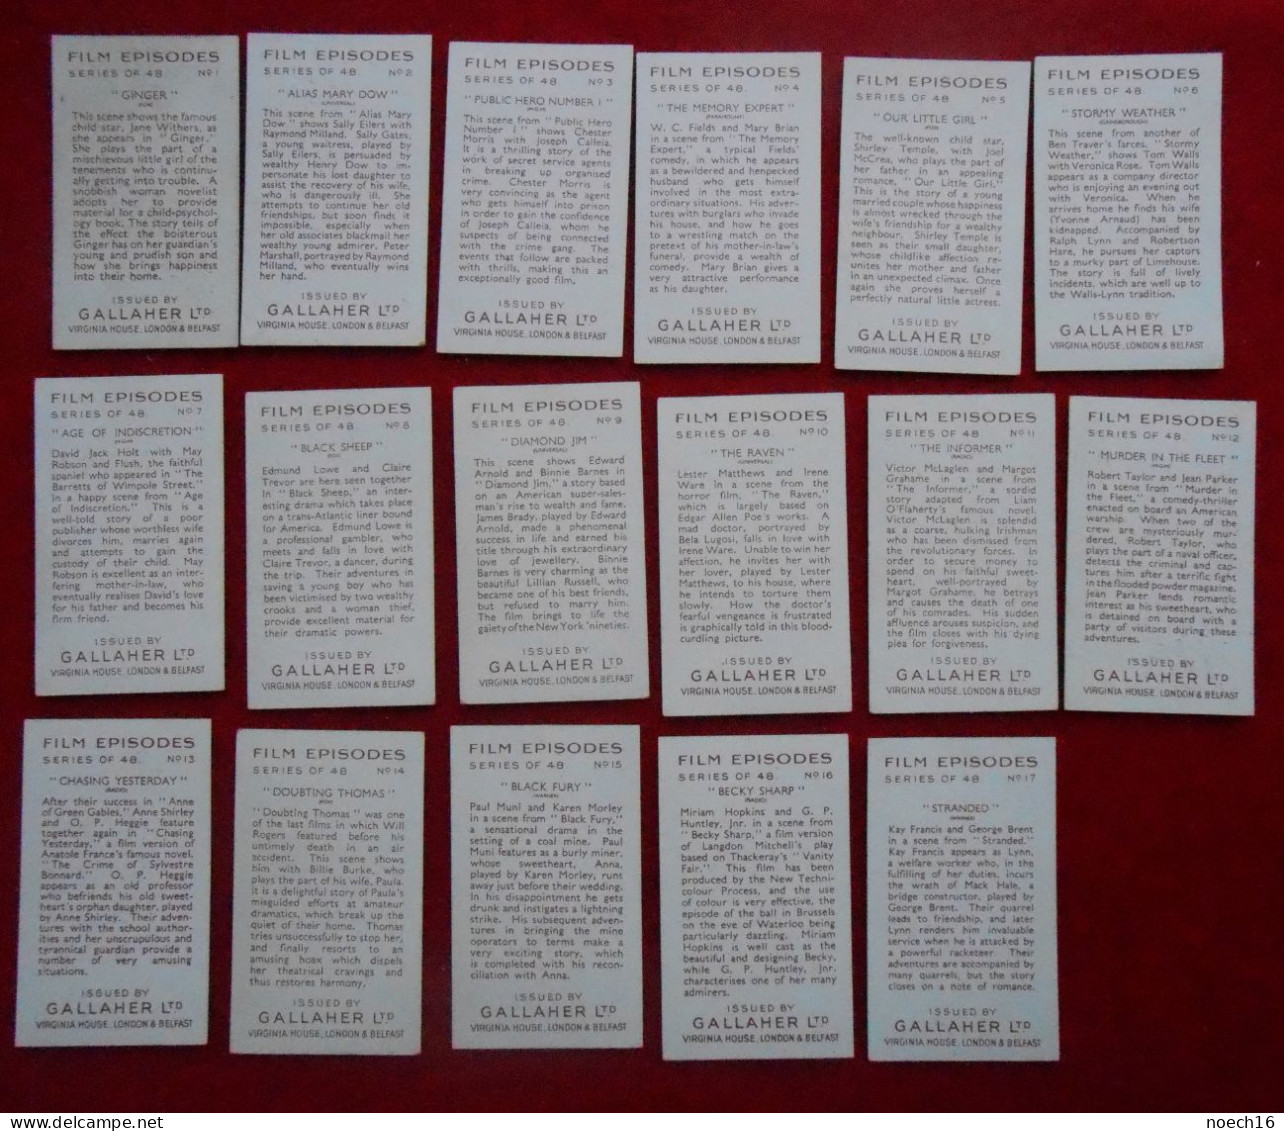 FILM EPISODES
SERIES OF 48 Nº 1
"GINGER"
(FOX)
This scene shows the famous
child star, Jane Withers, as
she appears in "Ginger."
She plays the part of a
mischievous little girl of the
tenements who is continu-
ally getting into trouble. A
snobbish woman novelist
adopts her to provide
material for a child-psychol-
ogy book. The story tells of
the effect the boisterous
Ginger has on her guardian's
young and prudish son and
how she brings happiness
into their home.
ISSUED BY
GALLAHER LTD
VIRGINIA HOUSE, LONDON & BELFAST
FILM EPISODES
SERIES OF 48. Nº 2
"ALIAS MARY DOW"
(UNIVERSAL)
This scene from "Alias Mary
Dow" shows Sally Eilers with
Raymond Milland. Sally Gates,
a young waitress, played by
Sally Eilers, is persuaded by
wealthy Henry Dow to im-
personate his lost daughter to
assist the recovery of his wife,
who is dangerously ill. She
attempts to continue her old
friendships, but soon finds it
impossible, especially when
her old associates blackmail her
wealthy young admirer, Peter
Marshall, portrayed by Raymond
Milland, who eventually wins
her hand.
ISSUED BY
GALLAHER LTD
VIRGINIA HOUSE, LONDON & BELFAST
FILM EPISODES
SERIES OF 48. Nº 3
"PUBLIC HERO NUMBER 1"
(MGM)
This scene from "Public Hero
Number 1" shows Chester
Morris with Joseph Calleia.
It is a thrilling story of the
work of secret service agents
in breaking up organised
crime. Chester Morris is
very convincing as the agent
who gets himself into prison
in order to gain the confidence
of Joseph Calleia, whom he
suspects of being connected
with the crime gang. The
events that follow are packed
with thrills, making this an
exceptionally good film.
ISSUED BY
GALLAHER LTD
VIRGINIA HOUSE, LONDON & BELFAST
FILM EPISODES
SERIES OF 48. Nº 4
"THE MEMORY EXPERT"
(PARAMOUNT)
W. C. Fields and Mary Brian
in a scene from "The Memory
Expert," a typical Fields'
comedy, in which he appears
as a bewildered and henpecked
husband who gets himself
involved in the most extra-
ordinary situations. His adven-
tures with burglars who invade
his house, and how he goes
to a wrestling match on the
pretext of his mother-in-law's
funeral, provide a wealth of
comedy. Mary Brian gives a
very attractive performance
as his daughter.
ISSUED BY
GALLAHER LTD
VIRGINIA HOUSE, LONDON & BELFAST
FILM EPISODES
SERIES OF 48 Nº 5
"OUR LITTLE GIRL"
(FOX)
The well-known child star,
Shirley Temple, with Joel
McCrea, who plays the part of
her father in an appealing
romance, "Our Little Girl."
This is the story of a young
married couple whose happiness
is almost wrecked through the
wife's friendship for a wealthy
neighbour. Shirley Temple is
seen as their small daughter,
whose childlike affection re-
unites her mother and father
in an unexpected climax. Once
again she proves herself a
perfectly natural little actress.
ISSUED BY
GALLAHER LTD
VIRGINIA HOUSE, LONDON & BELFAST
FILM EPISODES
SERIES OF 48 Nº 6
"STORMY WEATHER"
(GAINSBOROUGH)
This scene from another of
Ben Traver's farces, "Stormy
Weather," shows Tom Walls
with Veronica Rose. Tom Walls
appears as a company director
who is enjoying an evening out
with Veronica. When he
arrives home he finds his wife
(Yvonne Arnaud) has been
kidnapped. Accompanied by
Ralph Lynn and Robertson
Hare, he pursues her captors
to a murky part of Limehouse.
The story is full of lively
incidents, which are well up to
the Walls-Lynn tradition.
ISSUED BY
GALLAHER LTD
VIRGINIA HOUSE, LONDON & BELFAST
FILM EPISODES
SERIES OF 48. Nº 7
"AGE OF INDISCRETION"
(MGM)
David Jack Holt with May
Robson and Flush, the faithful
spaniel who appeared in "The
Barretts of Wimpole Street,"
in a happy scene from "Age
of Indiscretion." This is a
well-told story of a poor
publisher whose worthless wife
divorces him, marries again
and attempts to gain the
custody of their child. May
Robson is excellent as an inter-
fering mother-in-law, who
eventually realises David's love
for his father and becomes his
firm friend.
ISSUED BY
GALLAHER LTD
VIRGINIA HOUSE, LONDON & BELFAST
FILM EPISODES
SERIES OF 48. Nº 8
"BLACK SHEEP"
(FOX)
Edmund Lowe and Claire
Trevor are here seen together
in "Black Sheep," an inter-
esting drama which takes place
on a trans-Atlantic liner bound
for America. Edmund Lowe is
a professional gambler, who
meets and falls in love with
Claire Trevor, a dancer, during
the trip. Their adventures in
saving a young boy who has
been victimised by two wealthy
crooks and a woman thief,
provide excellent material for
their dramatic powers.
ISSUED BY
GALLAHER LTD
VIRGINIA HOUSE, LONDON & BELFAST
FILM EPISODES
SERIES OF 48. Nº 9
"DIAMOND JIM"
(UNIVERSAL)
This scene shows Edward
Arnold and Binnie Barnes in
"Diamond Jim," a story based
on an American super-sales-
man's rise to wealth and fame.
James Brady, played by Edward
Arnold, made a phenomenal
success in life and earned his
title through his extraordinary
love of jewellery. Binnie
Barnes is very charming as the
beautiful Lillian Russell, who
became one of his best friends,
but refused to marry him.
The film brings to life the
gaiety of the New York 'nineties.
ISSUED BY
GALLAHER LTD
VIRGINIA HOUSE, LONDON & BELFAST
FILM EPISODES
SERIES OF 48. Nº 10
"THE RAVEN"
(UNIVERSAL)
Lester Matthews and Irene
Ware in a scene from the
horror film, "The Raven,"
which is largely based on
Edgar Allen Poe's works. A
mad doctor, portrayed by
Bela Lugosi, falls in love with
Irene Ware. Unable to win her
affection, he invites her with
her lover, played by Lester
Matthews, to his house, where
he intends to torture them
slowly. How the doctor's
fearful vengeance is frustrated
is graphically told in this blood-
curdling picture.
ISSUED BY
GALLAHER LTD
VIRGINIA HOUSE, LONDON & BELFAST
FILM EPISODES
SERIES OF 48 Nº 11
"THE INFORMER"
(RADIO)
Victor McLaglen and Margot
Grahame in a scene from
"The Informer," a sordid
story adapted from Liam
O'Flaherty's famous novel.
Victor McLaglen is splendid
as a coarse, hulking Irishman
who has been dismissed from
the revolutionary forces. In
order to secure money to
spend on his faithful sweet-
heart, well-portrayed by
Margot Grahame, he betrays
and causes the death of one
of his comrades. His sudden
affluence arouses suspicion, and
the film closes with his dying
plea for forgiveness.
ISSUED BY
GALLAHER LTD
VIRGINIA HOUSE, LONDON & BELFAST
FILM EPISODES
SERIES OF 48. Nº 12
"MURDER IN THE FLEET"
(MGM)
Robert Taylor and Jean Parker
in a scene from "Murder in
the Fleet," a comedy-thriller
enacted on board an American
warship. When two of the
crew are mysteriously mur-
dered, Robert Taylor, who
plays the part of a naval officer,
detects the criminal and cap-
tures him after a terrific fight
in the flooded powder magazine.
Jean Parker lends romantic
interest as his sweetheart, who
is detained on board with a
party of visitors during these
adventures.
ISSUED BY
GALLAHER LTD
VIRGINIA HOUSE, LONDON & BELFAST
FILM EPISODES
SERIES OF 48. Nº 13
"CHASING YESTERDAY"
(RADIO)
After their success in "Anne
of Green Gables," Anne Shirley
and O. P. Heggie feature
together again in "Chasing
Yesterday," a film version of
Anatole France's famous novel,
"The Crime of Sylvestre
Bonnard." O. P. Heggie
appears as an old professor
who befriends his old sweet-
heart's orphan daughter, played
by Anne Shirley. Their adven-
tures with the school author-
ities and her unscrupulous and
tyrannical guardian provide a
number of very amusing
situations.
ISSUED BY
GALLAHER LTD
VIRGINIA HOUSE, LONDON & BELFAST
FILM EPISODES
SERIES OF 48 Nº 14
"DOUBTING THOMAS"
(FOX)
"Doubting Thomas" was one
of the last films in which Will
Rogers featured before his
untimely death in an air
accident. This scene shows
him with Billie Burke, who
plays the part of his wife, Paula.
It is a delightful story of Paula's
misguided efforts at amateur
dramatics, which break up the
quiet of their home. Thomas
tries unsuccessfully to stop her,
and finally resorts to an
amusing hoax which dispels
her theatrical cravings and
thus restores harmony.
ISSUED BY
GALLAHER LTD
VIRGINIA HOUSE, LONDON & BELFAST
FILM EPISODES
SERIES OF 48 Nº 15
"BLACK FURY"
(WARNER)
Paul Muni and Karen Morley
in a scene from "Black Fury,"
a sensational drama in the
setting of a coal mine. Paul
Muni features as a burly miner,
whose sweetheart, Anna,
played by Karen Morley, runs
away just before their wedding.
In his disappointment he gets
drunk and instigates a lightning
strike. His subsequent adven-
tures in bringing the mine
operators to terms make a
very exciting story, which
is completed with his recon-
ciliation with Anna.
ISSUED BY
GALLAHER LTD
VIRGINIA HOUSE, LONDON & BELFAST
FILM EPISODES
SERIES OF 48. Nº 16
"BECKY SHARP"
(RADIO)
Miriam Hopkins and G. P.
Huntley, Jnr. in a scene from
"Becky Sharp," a film version
of Langdon Mitchell's play
based on Thackeray's "Vanity
Fair." This film has been
produced by the New Techni-
colour Process, and the use
of colour is very effective, the
episode of the ball in Brussels
on the eve of Waterloo being
particularly dazzling. Miriam
Hopkins is well cast as the
beautiful and designing Becky,
while G. P. Huntley, Jnr.
characterises one of her many
admirers.
ISSUED BY
GALLAHER LTD
VIRGINIA HOUSE, LONDON & BELFAST
FILM EPISODES
SERIES OF 48 Nº 17
"STRANDED"
(WARNER)
Kay Francis and George Brent
in a scene from "Stranded."
Kay Francis appears as Lynn,
a welfare worker who, in the
fulfilling of her duties, incurs
the wrath of Mack Hale, a
bridge constructor, played by
George Brent. Their quarrel
leads to friendship, and later
Lynn renders him invaluable
service when he is attacked by
a powerful racketeer. Their
adventures are accompanied by
many quarrels, but the story
closes on a note of romance.
ISSUED BY
GALLAHER LTD
VIRGINIA HOUSE, LONDON & BELFAST
noech16